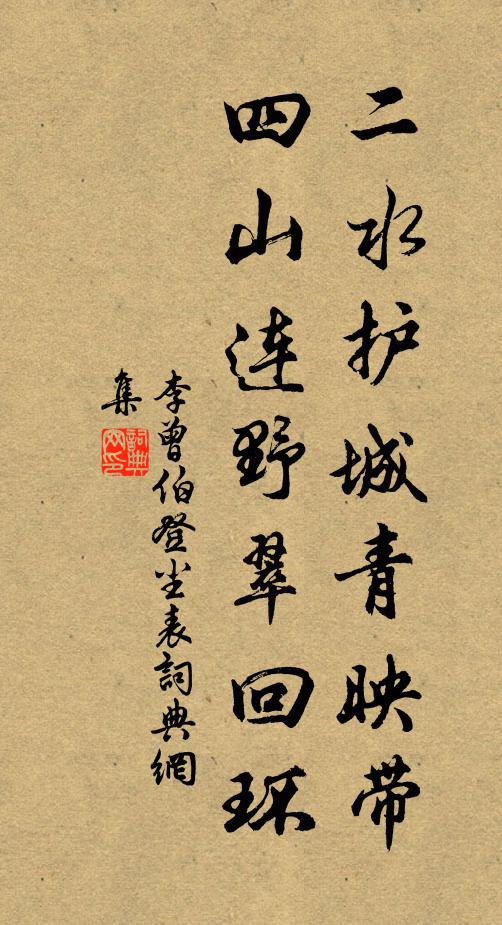 二水护城青映带
四山连野翠回环
李曾伯登尘表詞典網
集
詞典
网印